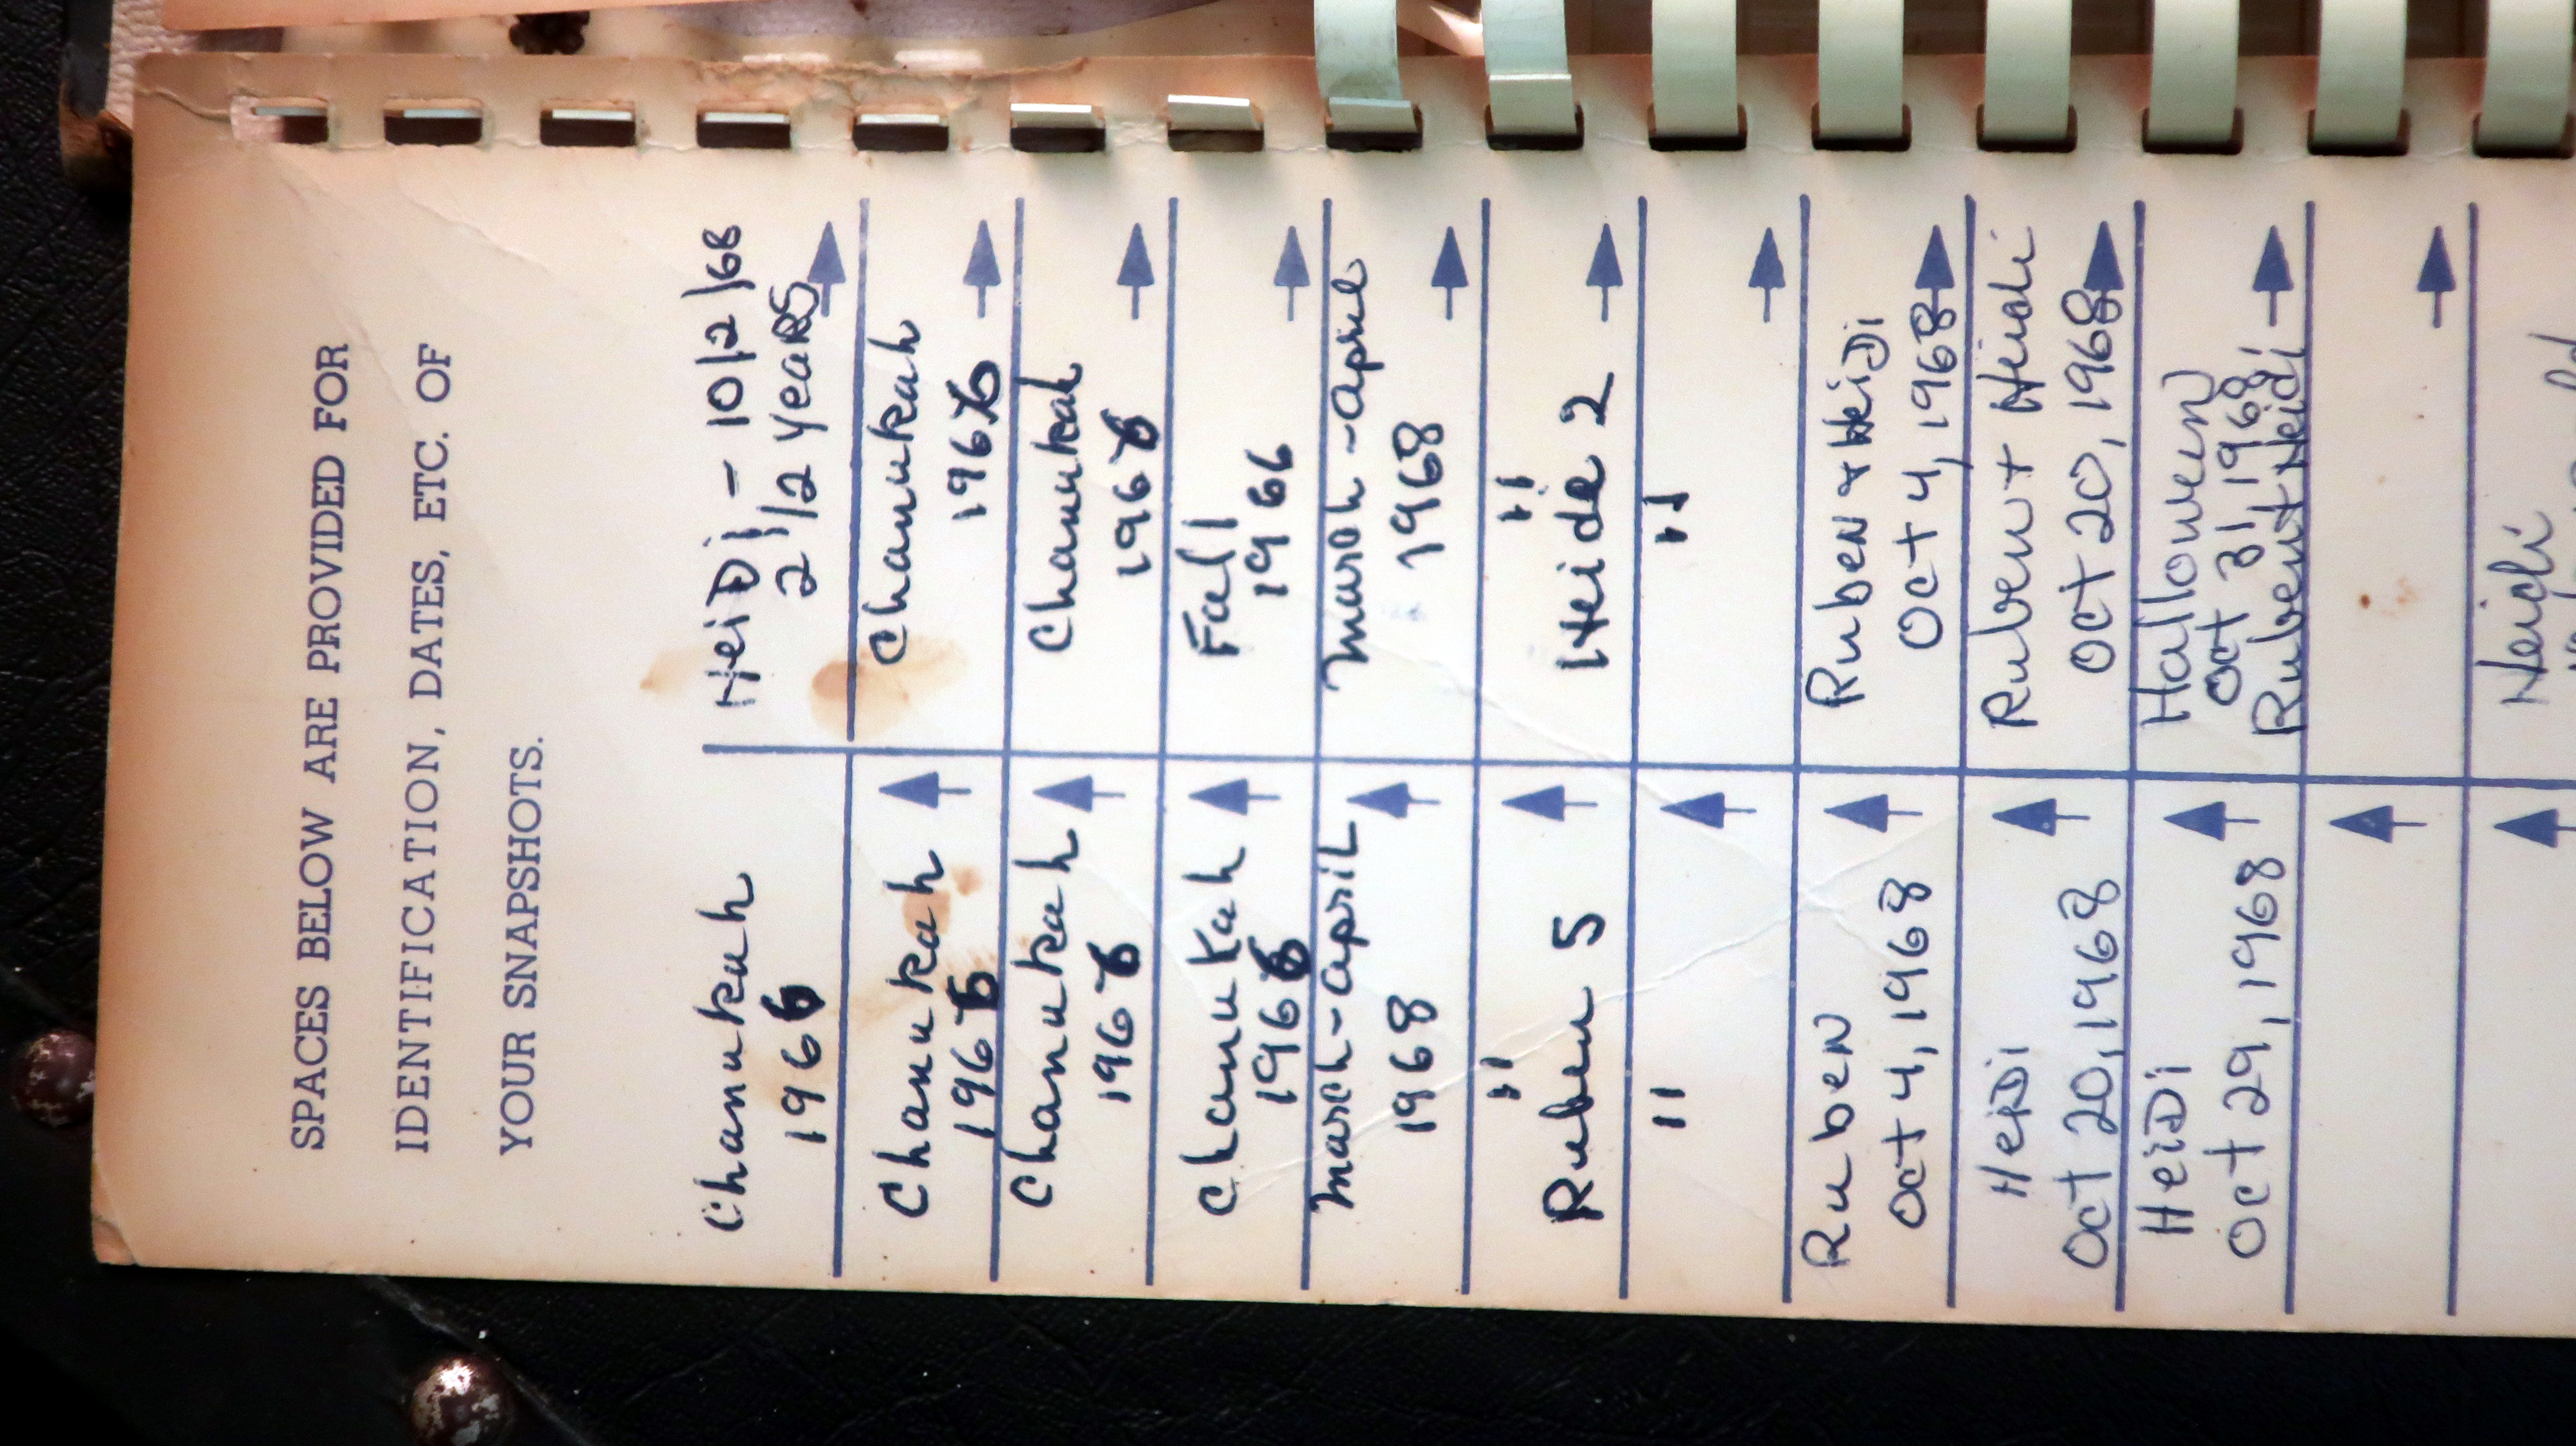 SPACES BELOW ARE PROVIDED FOR
IDENTIFICATION, DATES, ETC. OF
YOUR SNAPSHOTS.
Chanukah
1966
HeiDi - 10/2/68
2 1/2 yeaRS
Chanukah
1966
Chanukah
1966
Chanukah
1966
Chanukah
1966
Chanukah
1966
Fall
1966
March-april
1968
March-april
1968
"
Ruben 5
"
Heide 2
"
"
RubeN
Oct 4, 1968
RubeN + HeiDi
Oct 4, 1968
HeiDi
Oct 20, 1968
Ruben + Heidi
Oct 20, 1968
HeiDi
Oct 29, 1968
Halloween
Oct 31, 1968
Ruben + Heidi
Heidi